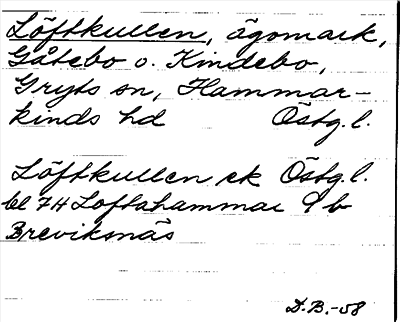 Löftkullen, ägomark,
Gåtebo o. Kindebo,
Gryts sn, Hammar-
kinds hd Östg. l.
Löftkullen ek Östg. l.
bl 74 Loftahammar 9 b
Breviksnäs
D.B.-58